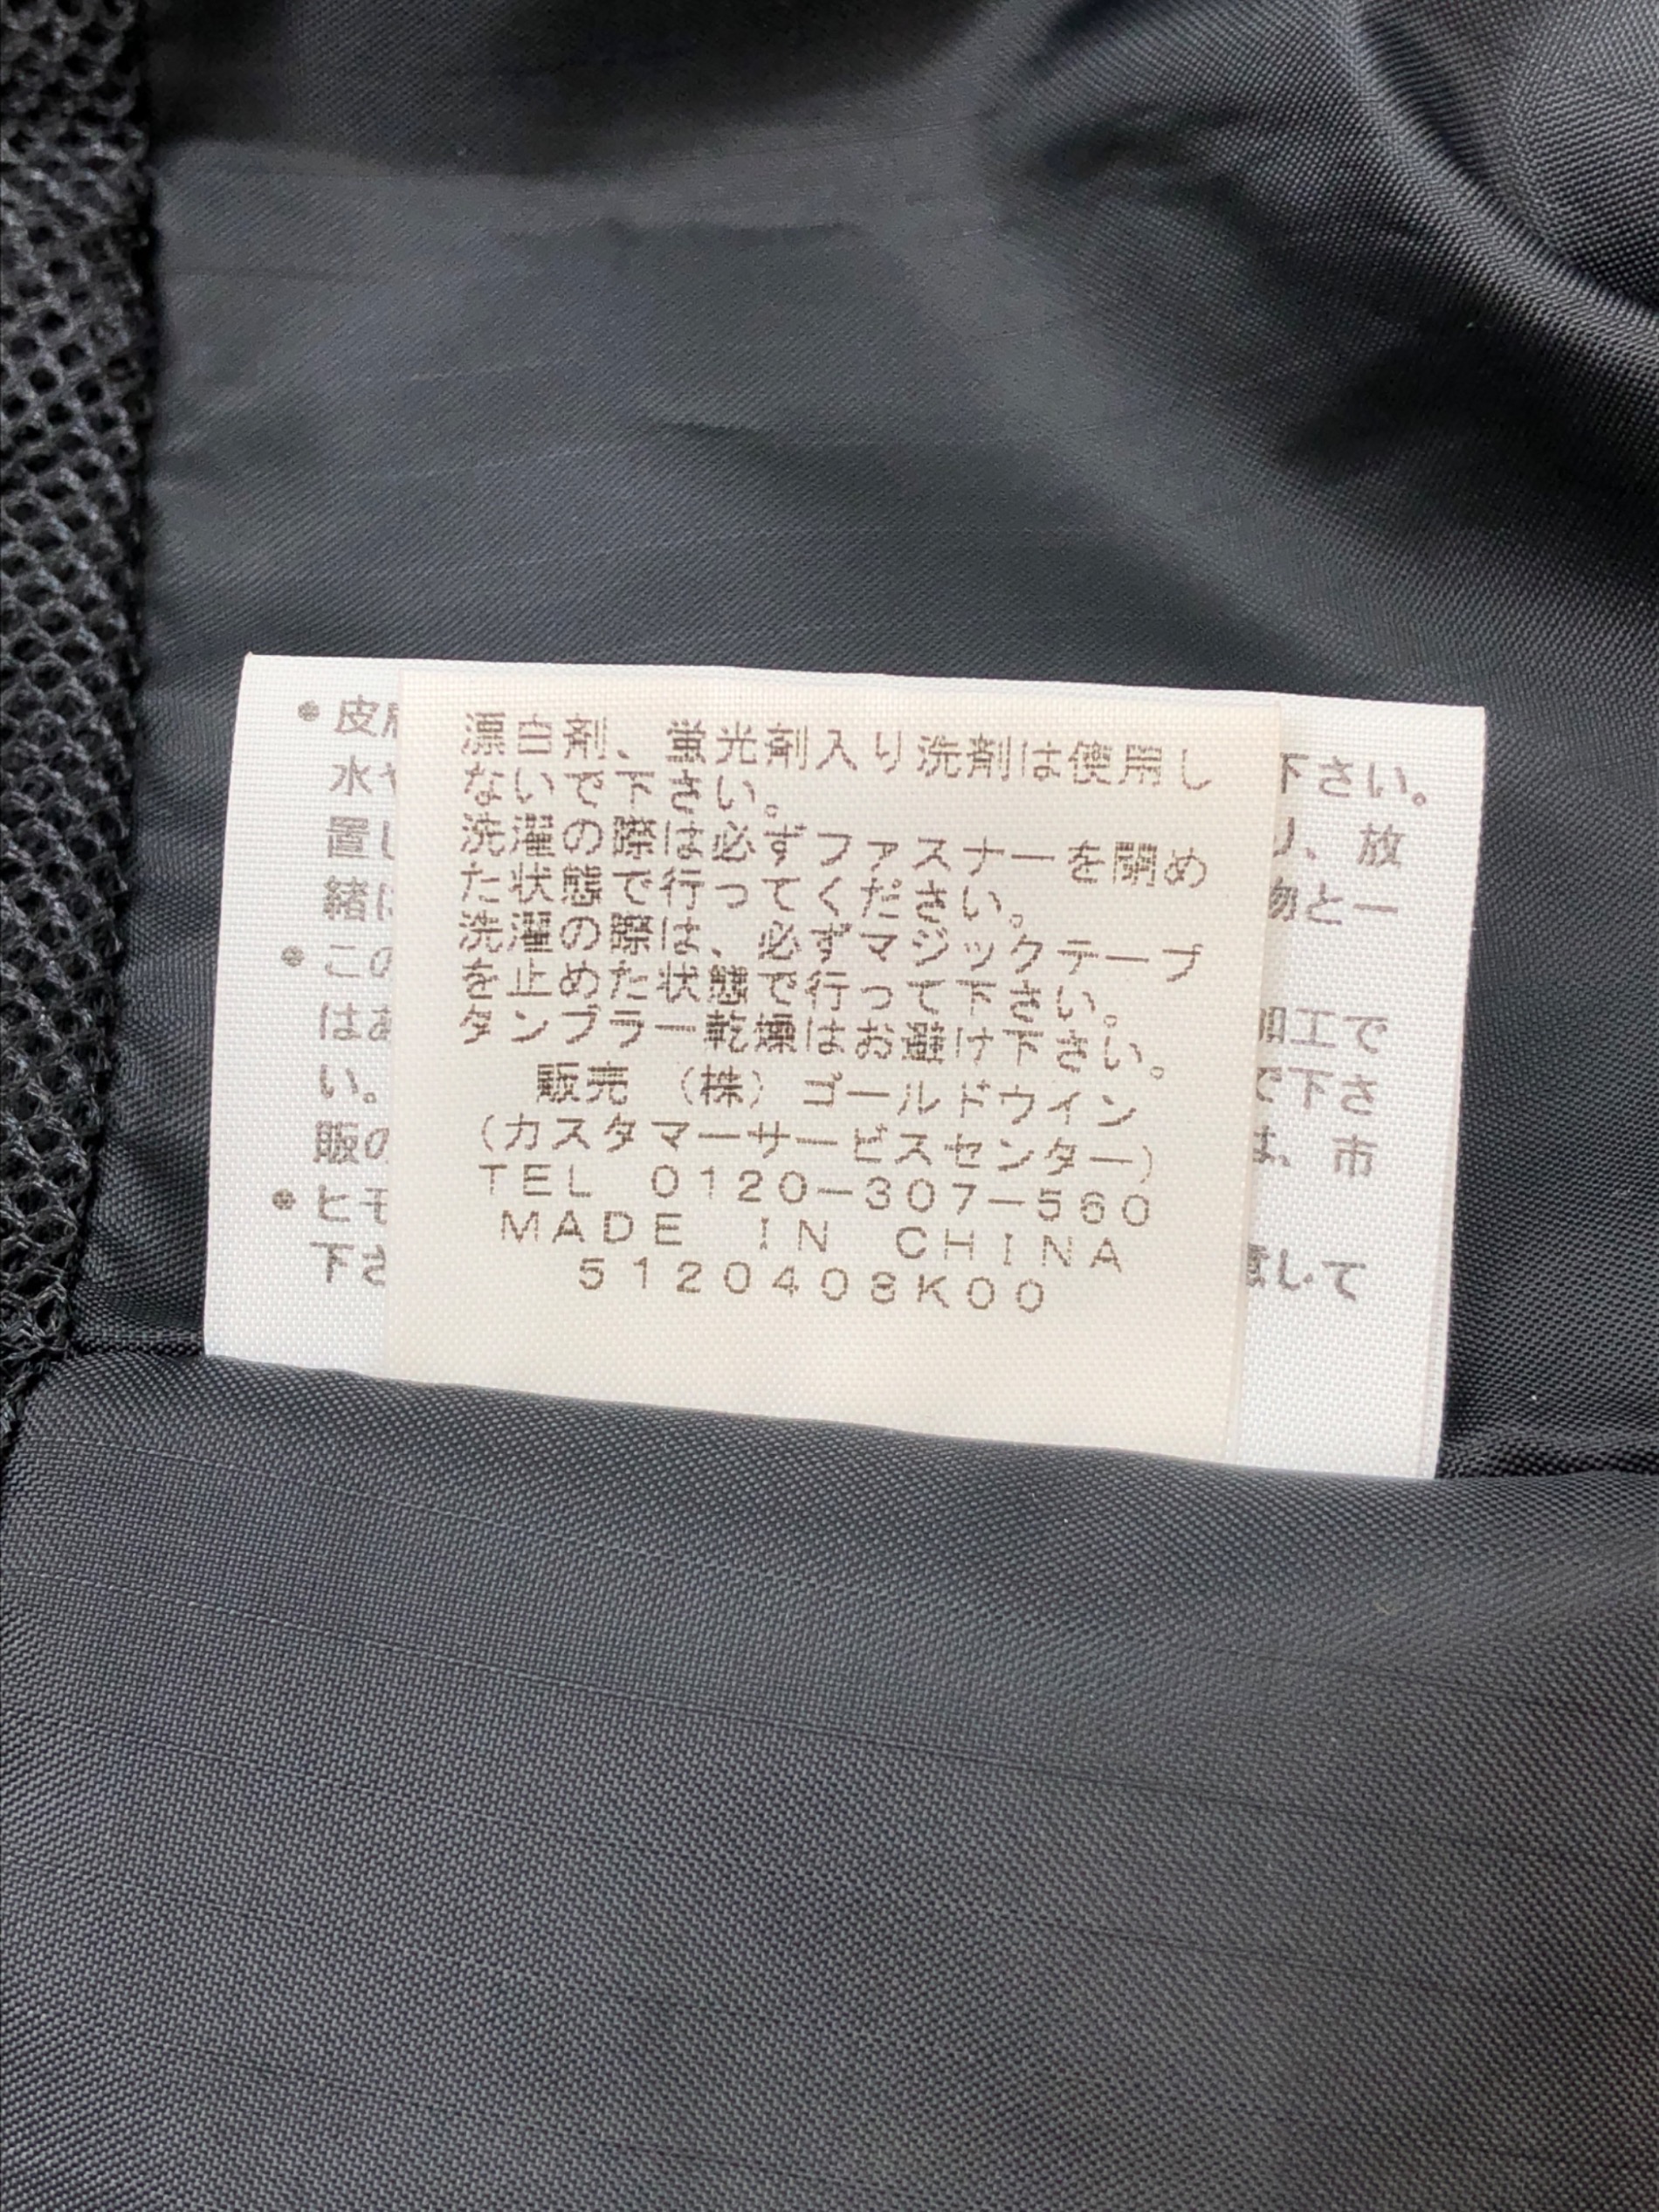 漂白剤、蛍光剤入り洗剤は使用し
ないで下さい。
洗濯の際は必ずファスナーを閉め
た状態で行ってください。
洗濯の際は、必ずマジックテープ
を止めた状態で行って下さい。
タンブラー乾燥はお避け下さい。
販売 (株) ゴールドウイン
(カスタマーサービスセンター)
TEL 0120-307-560
MADE IN CHINA
5120408K00
●皮
水 下さい。
置し 、放
緒に 物と一
●この
は 工で
い。 で下さ
販の 、市
●ヒモ
下さ して